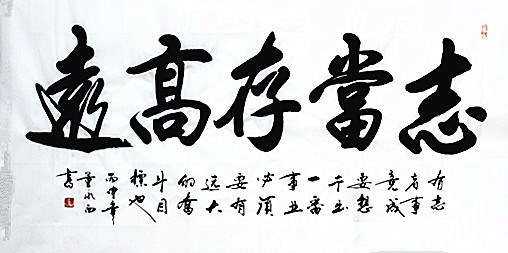 志當存高遠
有志
者事
竟成
要想
干出
一番
事业
必须
要有
远大
的奮
斗目
標也
丙申年
書